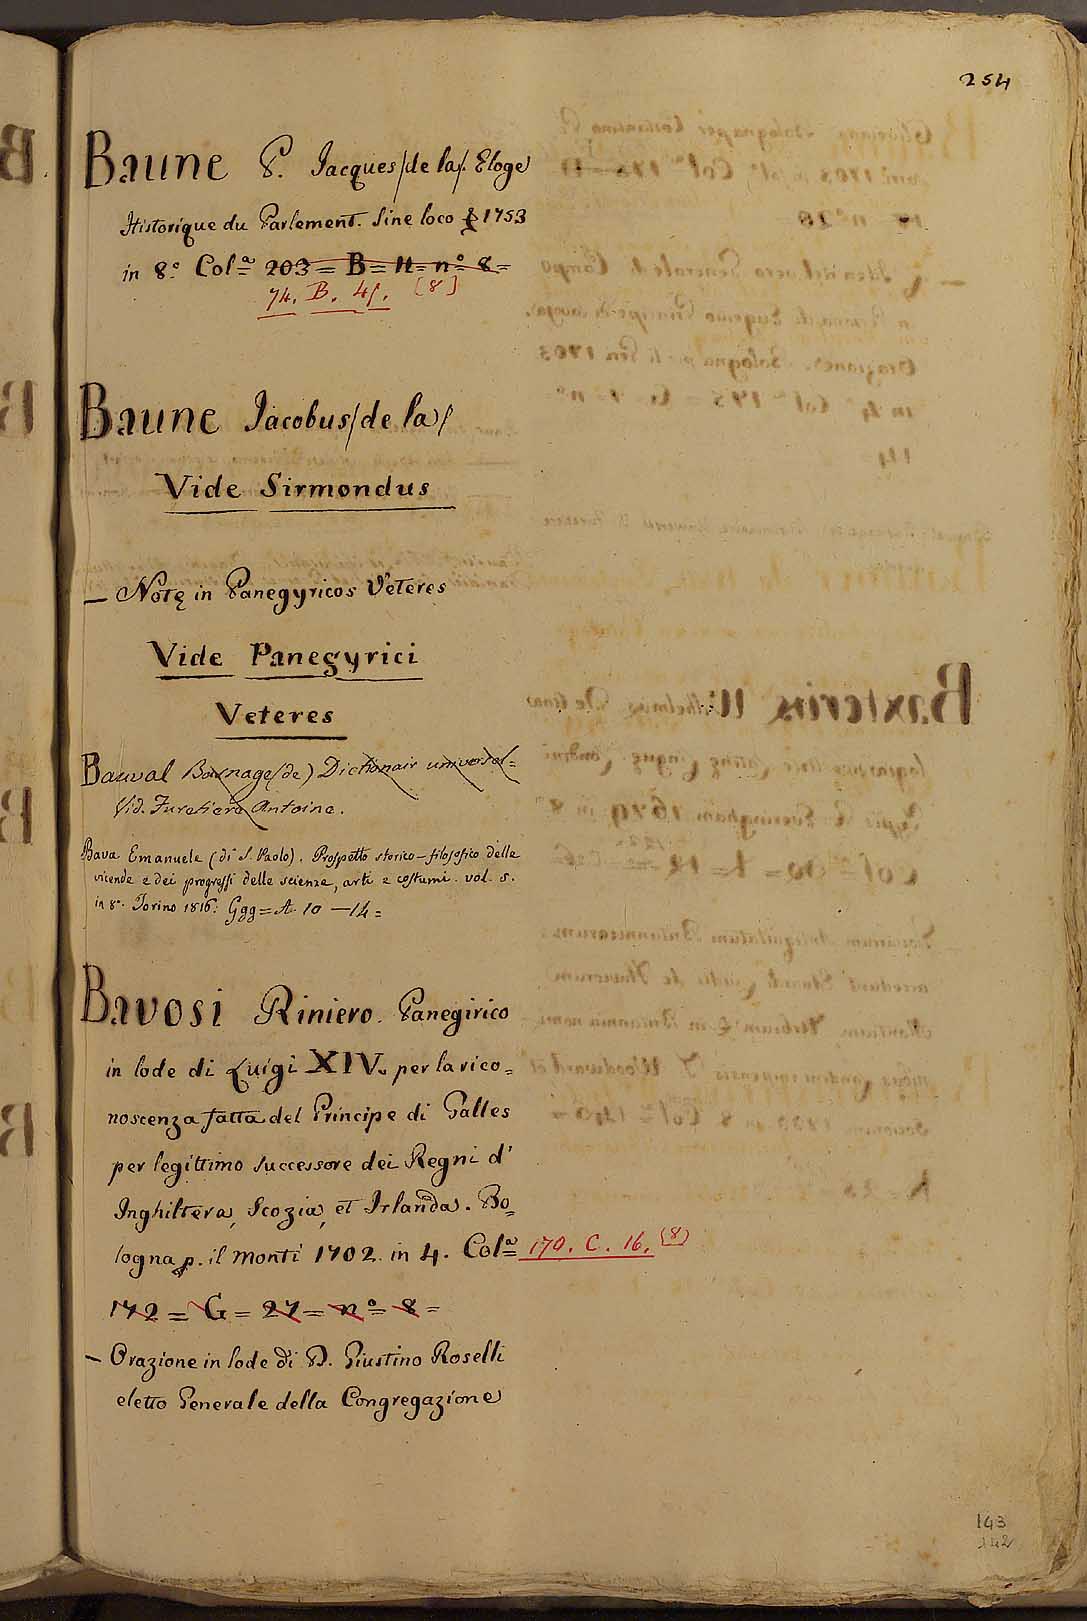 254
Baune P. Jacques /de la/. Eloge
Historique du Parlement. Sine loco 1753
in 8.° Col.ª 203 = B = 11 = n.° 8 =
74. B. 41. [8]
Baune Jacobus /de la/
Vide Sirmondus
— Notę in Panegyricos Veteres
Vide Panegyrici
Veteres
Bauval Basnage (de) Dictionair universel =
Vid. Furetiere Antoine.
Bava Emanuele (di S. Paolo). Prospetto storico-filosofico delle
vicende e dei progressi delle scienze, arti e costumi. vol. 5.
in 8.° Torino 1816: Ggg = A. 10 — 14 =
Bavosi Riniero. Panegirico
in lode di Luigi XIV. per la rico=
noscenza fatta del Principe di Galles
per legittimo successore dei Regni d'
Inghiltera, Scozia, et Irlanda. Bo=
logna p. il Monti 1702. in 4. Col.ª 170. C. 16. (8)
172 = G = 27 = n.° = 8 =
— Orazione in lode di D. Giustino Roselli
eletto Generale della Congregazione
143
142